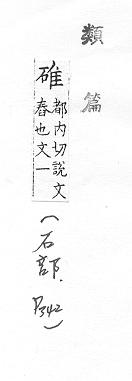 類篇
碓
都内切説文
舂也文一
(石部. P342)